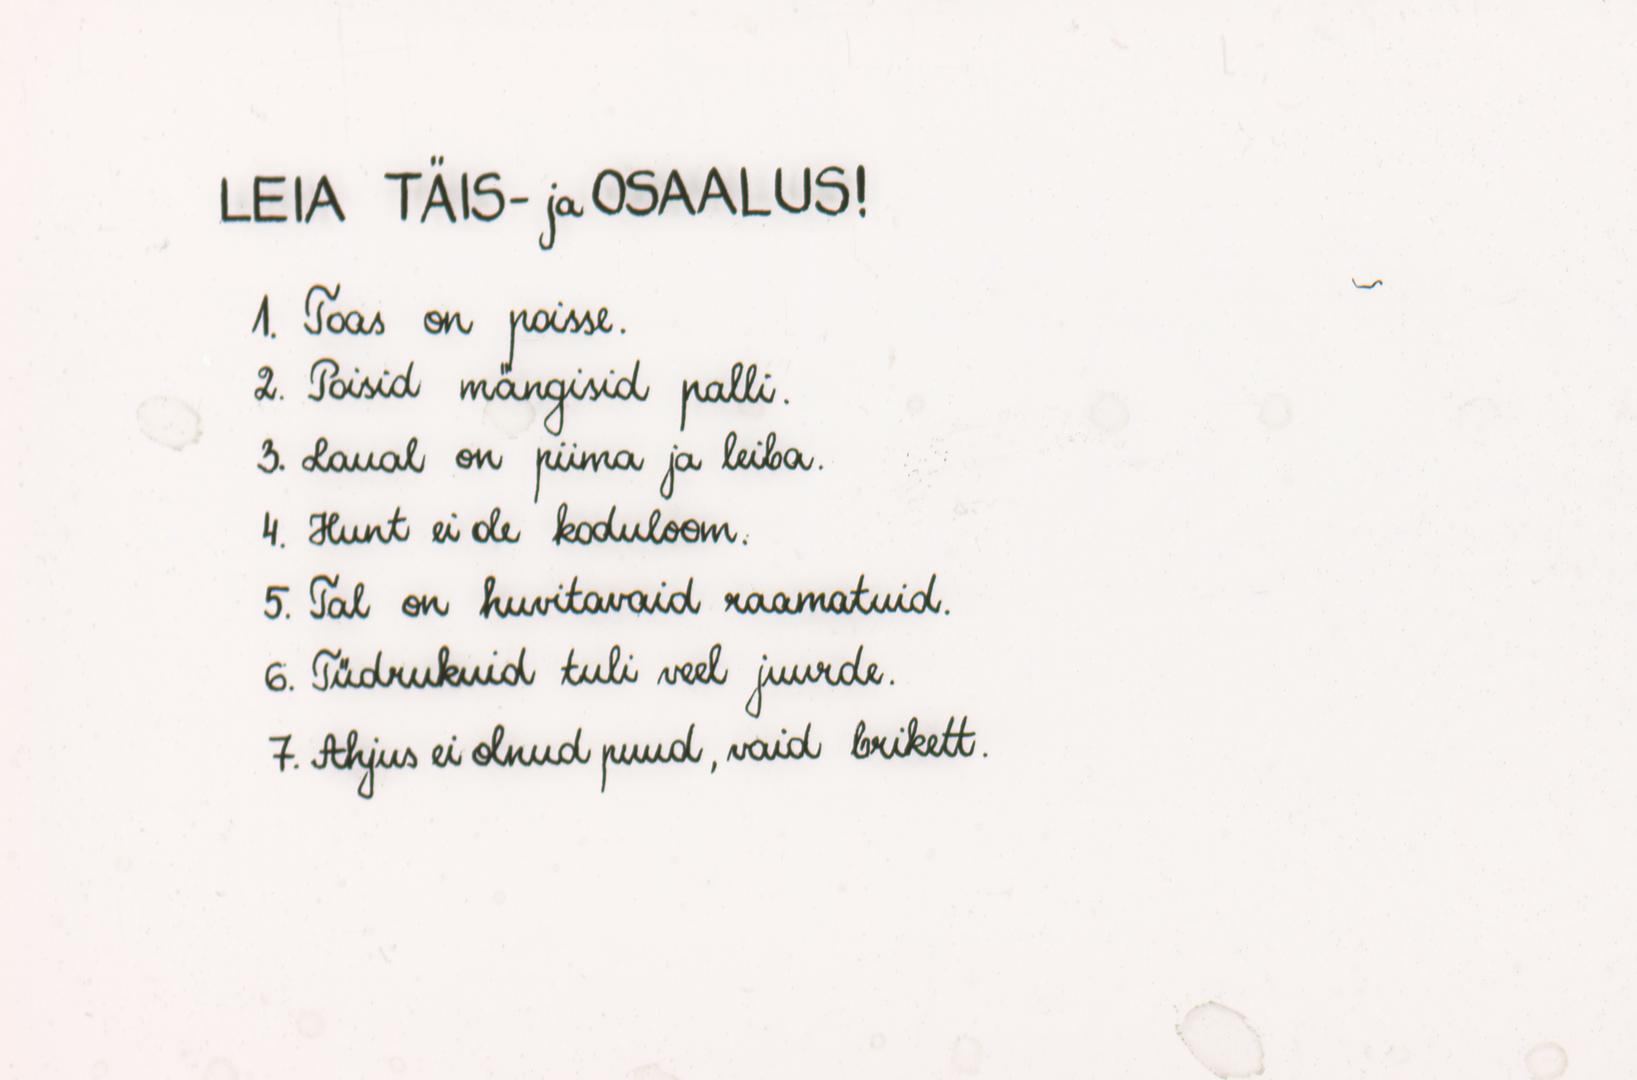 LEIA TÄIS- ja OSAALUS!
1. Toas on poisse.
2. Poisid mängisid palli.
3. Laual on piima ja leiba.
4. Hunt ei ole koduloom.
5. Tal on huvitavaid raamatuid.
6. Tüdrukuid tuli veel juurde.
7. Ahjus ei olnud puud, vaid brikett.